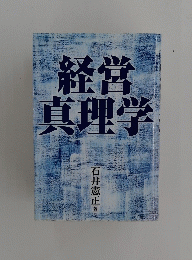 経営
真理学
石井憲正
著